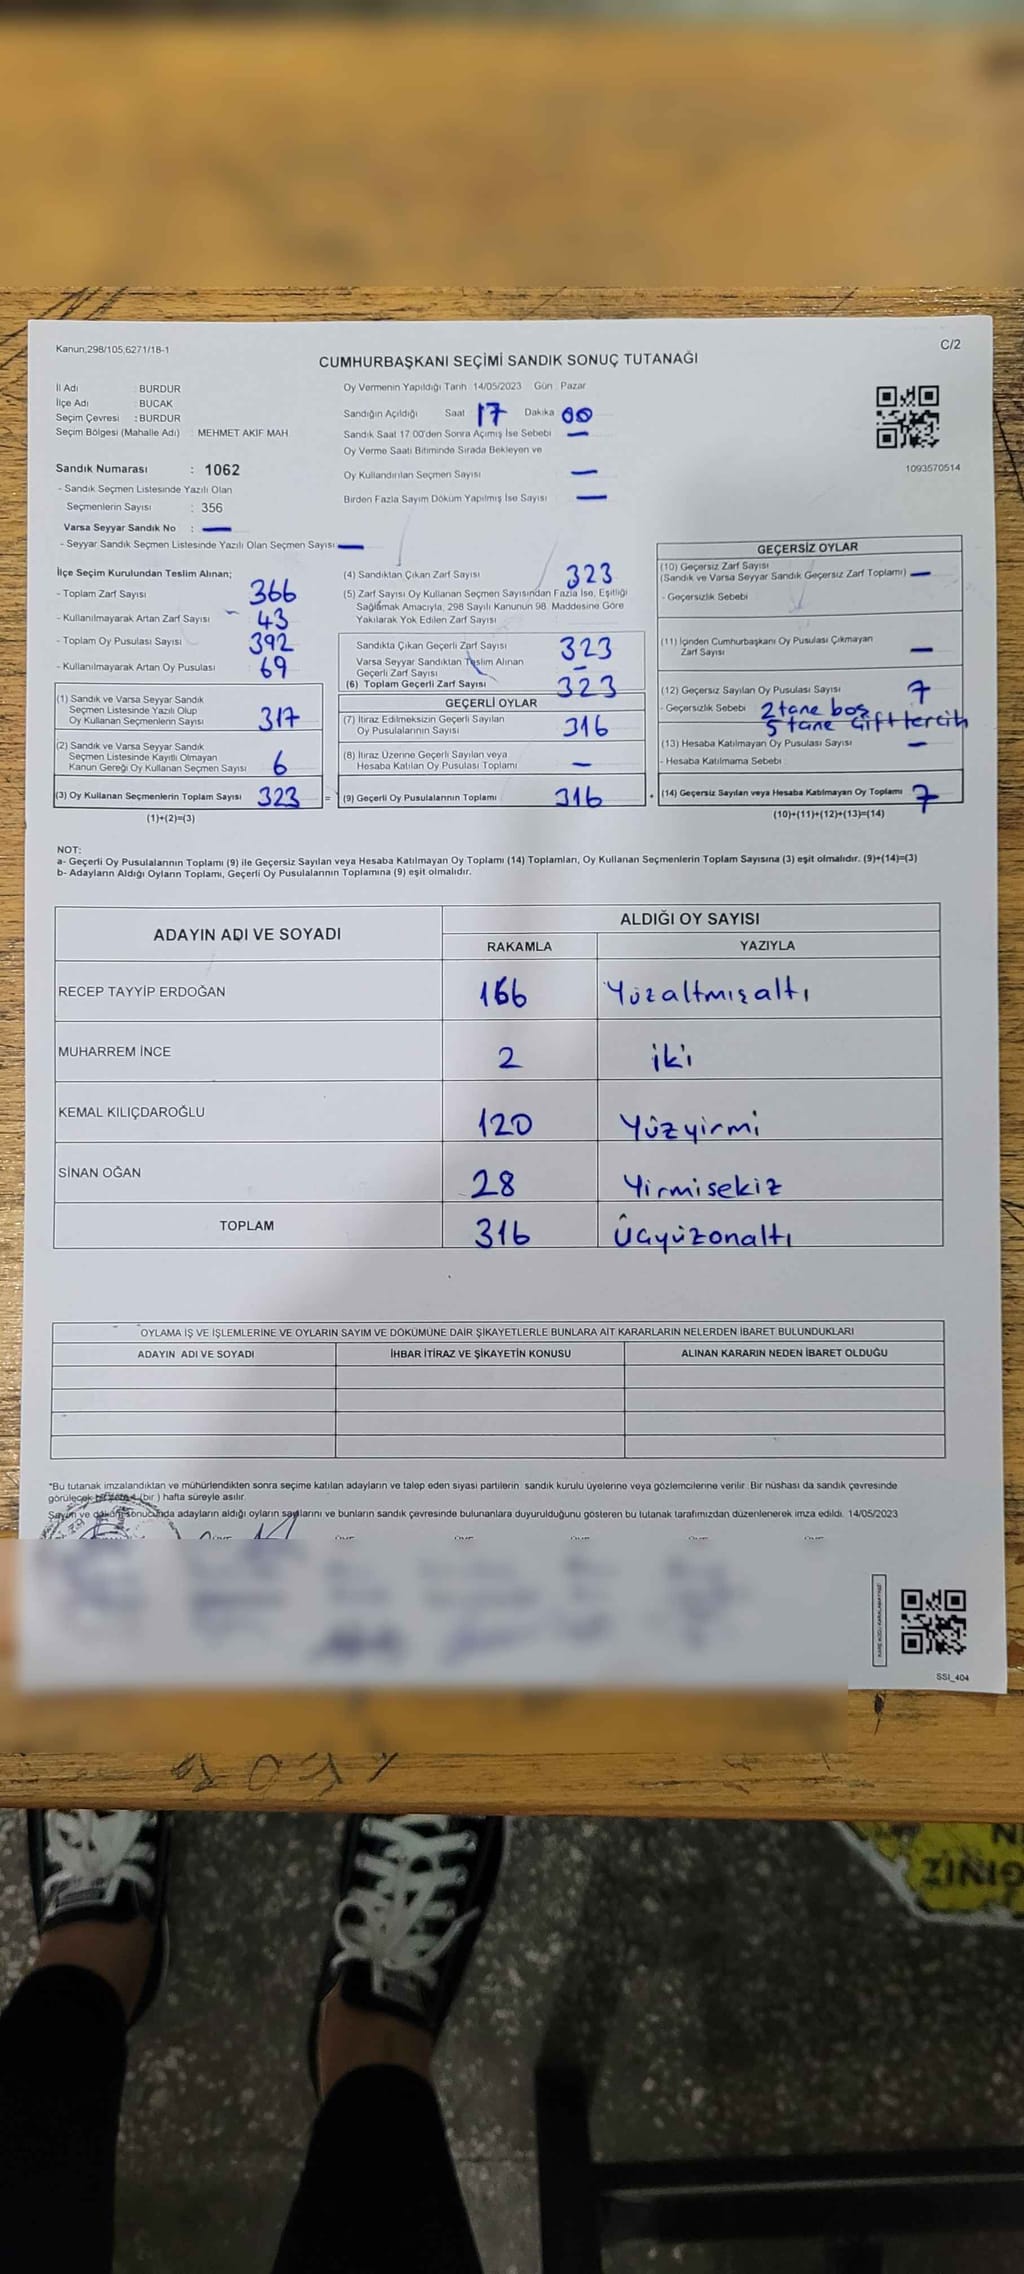 Kanun,298/105,6271/18-1
C/2
CUMHURBAŞKANI SEÇİMİ SANDIK SONUÇ TUTANAĞI
İl Adı : BURDUR
İlçe Adı : BUCAK
Seçim Çevresi : BURDUR
Seçim Bölgesi (Mahalle Adı) : MEHMET AKİF MAH.
Sandık Numarası : 1062
- Sandık Seçmen Listesinde Yazılı Olan
Seçmenlerin Sayısı : 356
Varsa Seyyar Sandık No : —
- Seyyar Sandık Seçmen Listesinde Yazılı Olan Seçmen Sayısı —
Oy Vermenin Yapıldığı Tarih 14/05/2023 Gün : Pazar
Sandığın Açıldığı Saat 17 Dakika 00
Sandık Saat 17.00'den Sonra Açılmış İse Sebebi —
Oy Verme Saati Bitiminde Sırada Bekleyen ve
Oy Kullandırılan Seçmen Sayısı —
Birden Fazla Sayım Döküm Yapılmış İse Sayısı —
1093570514
İlçe Seçim Kurulundan Teslim Alınan;
- Toplam Zarf Sayısı 366
- Kullanılmayarak Artan Zarf Sayısı 43
- Toplam Oy Pusulası Sayısı 392
- Kullanılmayarak Artan Oy Pusulası 69
(1) Sandık ve Varsa Seyyar Sandık
Seçmen Listesinde Yazılı Olup
Oy Kullanan Seçmenlerin Sayısı 317
(2) Sandık ve Varsa Seyyar Sandık
Seçmen Listesinde Kayıtlı Olmayan
Kanun Gereği Oy Kullanan Seçmen Sayısı 6
(3) Oy Kullanan Seçmenlerin Toplam Sayısı 323 =
(1)+(2)=(3)
(4) Sandıktan Çıkan Zarf Sayısı 323
(5) Zarf Sayısı Oy Kullanan Seçmen Sayısından Fazla İse, Eşitliği
Sağlamak Amacıyla, 298 Sayılı Kanunun 98. Maddesine Göre
Yakılarak Yok Edilen Zarf Sayısı
Sandıkta Çıkan Geçerli Zarf Sayısı 323
Varsa Seyyar Sandıktan Teslim Alınan
Geçerli Zarf Sayısı —
(6) Toplam Geçerli Zarf Sayısı 323
GEÇERLİ OYLAR
(7) İtiraz Edilmeksizin Geçerli Sayılan
Oy Pusulalarının Sayısı 316
(8) İtiraz Üzerine Geçerli Sayılan veya
Hesaba Katılan Oy Pusulası Toplamı —
(9) Geçerli Oy Pusulalarının Toplamı 316 +
GEÇERSİZ OYLAR
(10) Geçersiz Zarf Sayısı
(Sandık ve Varsa Seyyar Sandık Geçersiz Zarf Toplamı) —
- Geçersizlik Sebebi
(11) İçinden Cumhurbaşkanı Oy Pusulası Çıkmayan
Zarf Sayısı —
(12) Geçersiz Sayılan Oy Pusulası Sayısı 7
- Geçersizlik Sebebi 2 tane boş
5 tane Çift tercih
(13) Hesaba Katılmayan Oy Pusulası Sayısı —
- Hesaba Katılmama Sebebi
(14) Geçersiz Sayılan veya Hesaba Katılmayan Oy Toplamı 7
(10)+(11)+(12)+(13)=(14)
NOT:
a- Geçerli Oy Pusulalarının Toplamı (9) ile Geçersiz Sayılan veya Hesaba Katılmayan Oy Toplamı (14) Toplamları, Oy Kullanan Seçmenlerin Toplam Sayısına (3) eşit olmalıdır. (9)+(14)=(3)
b- Adayların Aldığı Oyların Toplamı, Geçerli Oy Pusulalarının Toplamına (9) eşit olmalıdır.
ADAYIN ADI VE SOYADI
ALDIĞI OY SAYISI
RAKAMLA YAZIYLA
RECEP TAYYİP ERDOĞAN 166 Yüzaltmışaltı
MUHARREM İNCE 2 iki
KEMAL KILIÇDAROĞLU 120 Yüzyirmi
SİNAN OĞAN 28 Yirmisekiz
TOPLAM 316 Üçyüzonaltı
OYLAMA İŞ VE İŞLEMLERİNE VE OYLARIN SAYIM VE DÖKÜMÜNE DAİR ŞİKAYETLERLE BUNLARA AİT KARARLARIN NELERDEN İBARET BULUNDUKLARI
ADAYIN ADI VE SOYADI İHBAR İTİRAZ VE ŞİKAYETİN KONUSU ALINAN KARARIN NEDEN İBARET OLDUĞU
*Bu tutanak imzalandıktan ve mühürlendikten sonra seçime katılan adayların ve talep eden siyasi partilerin sandık kurulu üyelerine veya gözlemcilerine verilir. Bir nüshası da sandık çevresinde
görülecek bir yere 1 (bir ) hafta süreyle asılır.
Sayım ve döküm sonucunda adayların aldığı oyların sayılarını ve bunların sandık çevresinde bulunanlara duyurulduğunu gösteren bu tutanak tarafımızdan düzenlenerek imza edildi. 14/05/2023
SSI_404